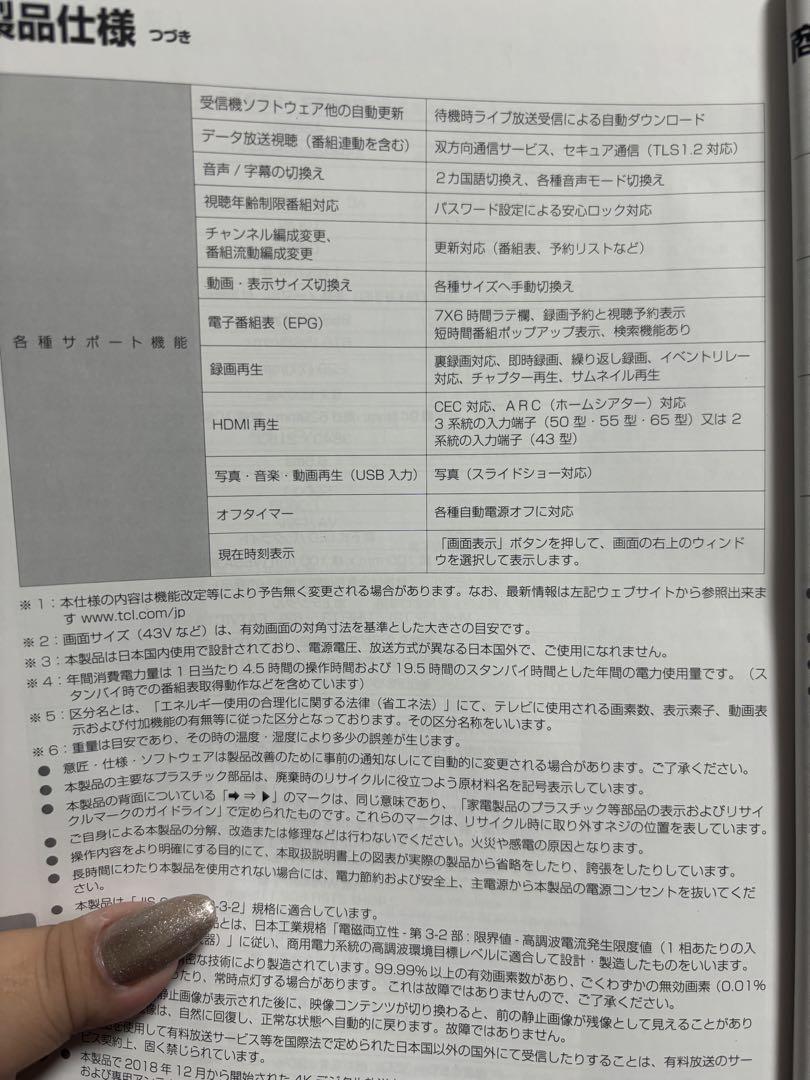 製品仕様 つづき
各種サポート機能
受信機ソフトウェア他の自動更新 待機時ライブ放送受信による自動ダウンロード
データ放送視聴（番組連動を含む） 双方向通信サービス、セキュア通信（TLS1.2 対応）
音声 / 字幕の切換え 2カ国語切換え、各種音声モード切換え
視聴年齢制限番組対応 パスワード設定による安心ロック対応
チャンネル編成変更、
番組流動編成変更 更新対応（番組表、予約リストなど）
動画・表示サイズ切換え 各種サイズへ手動切換え
電子番組表（EPG） 7X6 時間ラテ欄、録画予約と視聴予約表示
短時間番組ポップアップ表示、検索機能あり
録画再生 裏録画対応、即時録画、繰り返し録画、イベントリレー
対応、チャプター再生、サムネイル再生
HDMI 再生 CEC 対応、ＡＲＣ（ホームシアター）対応
3 系統の入力端子（50 型・55 型・65 型）又は 2
系統の入力端子（43 型）
写真・音楽・動画再生（USB 入力） 写真（スライドショー対応）
オフタイマー 各種自動電源オフに対応
現在時刻表示 「画面表示」ボタンを押して、画面の右上のウィンド
ウを選択して表示します。
※ 1：本仕様の内容は機能改定等により予告無く変更される場合があります。なお、最新情報は左記ウェブサイトから参照出来ま
す www.tcl.com/jp
※ 2：画面サイズ（43V など）は、有効画面の対角寸法を基準とした大きさの目安です。
※ 3：本製品は日本国内使用で設計されており、電源電圧、放送方式が異なる日本国外で、ご使用になれません。
※ 4：年間消費電力量は 1 日当たり 4.5 時間の操作時間および 19.5 時間のスタンバイ時間とした年間の電力使用量です。（ス
タンバイ時での番組表取得動作などを含めています）
※ 5：区分名とは、「エネルギー使用の合理化に関する法律（省エネ法）」にて、テレビに使用される画素数、表示素子、動画表
示および付加機能の有無等に従った区分となっております。その区分名称をいいます。
※ 6：重量は目安であり、その時の温度・湿度により多少の誤差が生じます。
● 意匠・仕様・ソフトウェアは製品改善のために事前の通知なしにて自動的に変更される場合があります。ご了承ください。
● 本製品の主要なプラスチック部品は、廃棄時のリサイクルに役立つよう原材料名を記号表示しています。
● 本製品の背面についている「➡ ⇒ ▶」のマークは、同じ意味であり、「家電製品のプラスチック等部品の表示およびリサイ
クルマークのガイドライン」で定められたものです。これらのマークは、リサイクル時に取り外すネジの位置を表しています。
● ご自身による本製品の分解、改造または修理などは行わないでください。火災や感電の原因となります。
● 操作内容をより明確にする目的にて、本取扱説明書上の図表が実際の製品から省略をしたり、誇張をしたりしています。
● 長時間にわたり本製品を使用されない場合には、電力節約および安全上、主電源から本製品の電源コンセントを抜いてくだ
さい。
● 本製品は「JIS -3-2」規格に適合しています。
品とは、日本工業規格「電磁両立性 - 第 3-2 部 : 限界値 - 高調波電流発生限度値（1 相あたりの入
器）」に従い、商用電力系統の高調波環境目標レベルに適合して設計・製造したものをいいます。
密な技術により製造されています。99.99% 以上の有効画素数があり、ごくわずかの無効画素（0.01%
たり、常時点灯する場合があります。 これは故障ではありませんので、ご了承ください。
静止画像が表示された後に、映像コンテンツが切り換わると、前の静止画像が残像として見えることがあり
像は、自然に回復し、正常な状態へ自動的に戻ります。故障ではありません。
を使用して有料放送サービス等を国際法で定められた日本国以外の国外にて受信したりすることは、有料放送のサー
ビス契約上、固く禁じられています。
● 本製品で 2018 年 12 月から開始された 4K デジタル
および専用アン